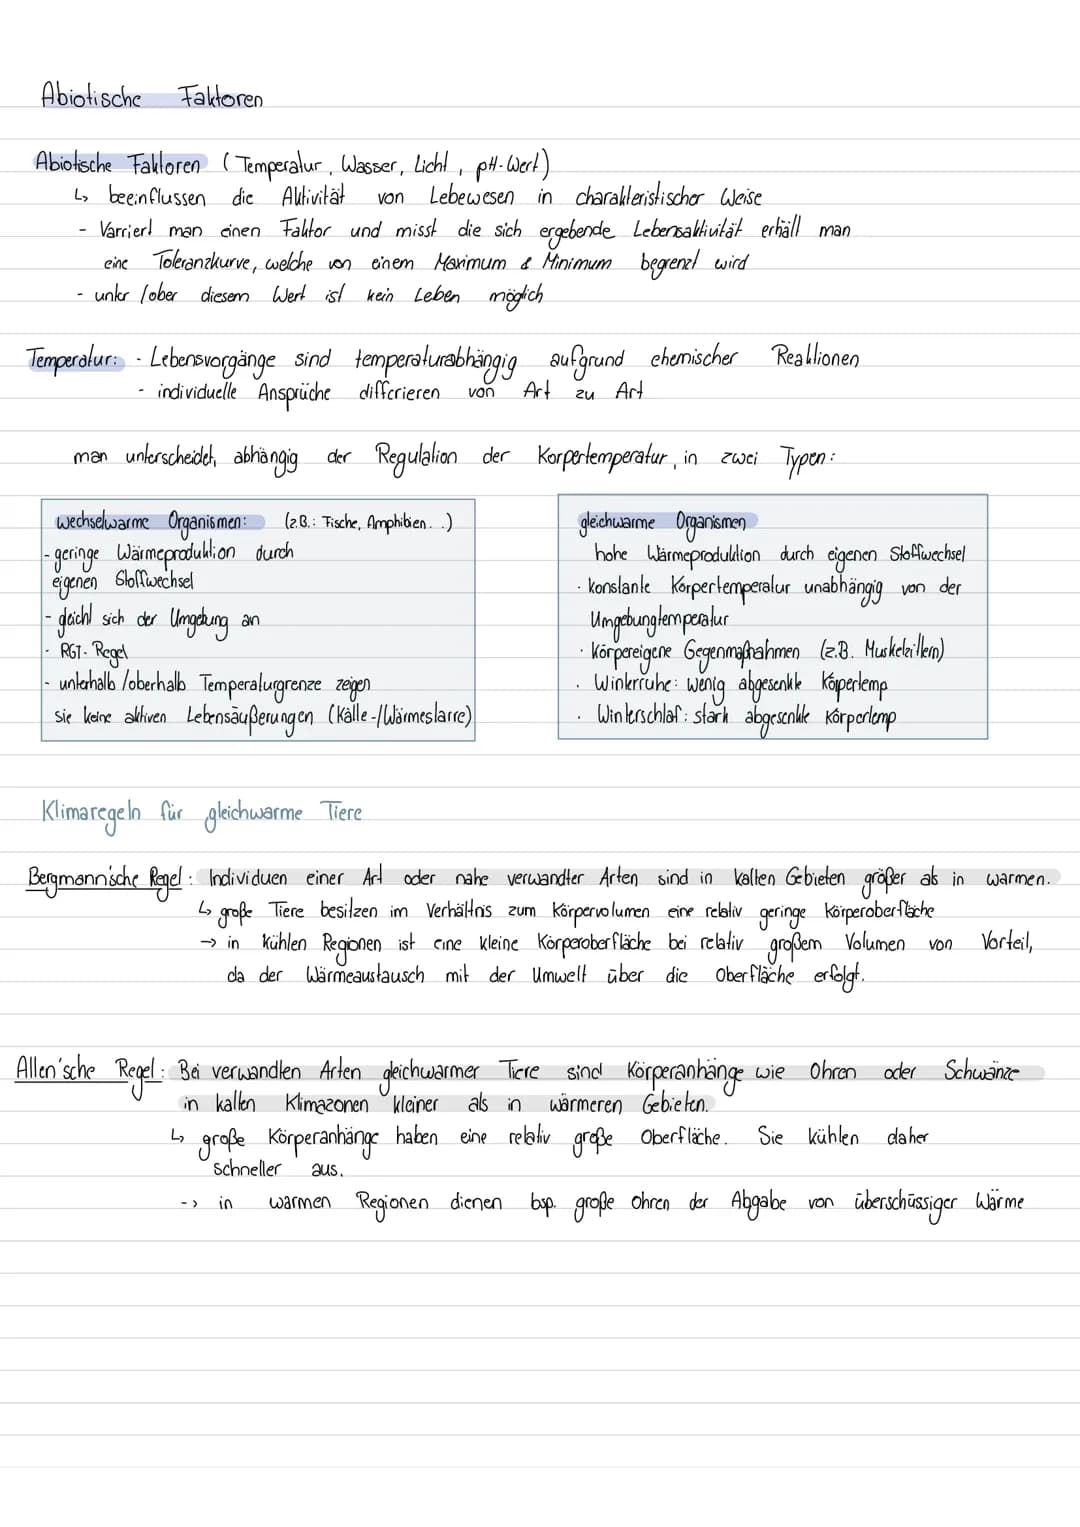 Abiotische Faktoren
Abiotische Faktoren (Temperatur, Wasser, Licht, pH-Wert)
↳ beeinflussen die Aktivität von Lebewesen in charakteristischer Weise
- Varriert man einen Faktor und misst die sich ergebende Lebensaktivität erhält man
eine Toleranzkurve, welche von einem Maximum & Minimum begrenzt wird
- unter /ober diesem Wert ist kein Leben möglich
Temperatur: - Lebensvorgänge sind temperaturabhängig aufgrund chemischer Reaktionen
- individuelle Ansprüche differieren von Art zu Art
man unterscheidet, abhängig der Regulation der Korpertemperatur, in zwei Typen:
wechselwarme Organismen: (z.B.: Fische, Amphibien...)
- geringe Wärmeproduktion durch
eigenen Stoffwechsel
- gleicht sich der Umgebung an
- RGT-Regel
- unterhalb /oberhalb Temperaturgrenze zeigen
sie keine aktiven Lebensäußerungen (Kälte-/Wärmestarre)
gleichwarme Organismen
hohe Wärmeproduktion durch eigenen Stoffwechsel
· konstante Körpertemperatur unabhängig von der
Umgebungtemperatur
· körpereigene Gegenmaßnahmen (z.B. Muskelzittern)
· Winterruhe: wenig abgesenkte Körpertemp
· Winterschlaf: stark abgesenkte Körpertemp
Klimaregeln für gleichwarme Tiere
Bergmann'sche Regel: Individuen einer Art oder nahe verwandter Arten sind in kalten Gebieten größer als in warmen.
↳ große Tiere besitzen im Verhältnis zum Körpervolumen eine relativ geringe Körperoberfläche
→ in kühlen Regionen ist eine kleine Körperoberfläche bei relativ großem Volumen von Vorteil,
da der Wärmeaustausch mit der Umwelt über die Oberfläche erfolgt.
Allen'sche Regel: Bei verwandten Arten gleichwarmer Tiere sind Körperanhänge wie Ohren oder Schwänze
in kalten Klimazonen kleiner als in wärmeren Gebieten.
↳ große Körperanhänge haben eine relativ große Oberfläche. Sie kühlen daher
schneller aus.
-> in warmen Regionen dienen bsp. große Ohren der Abgabe von überschüssiger Wärme